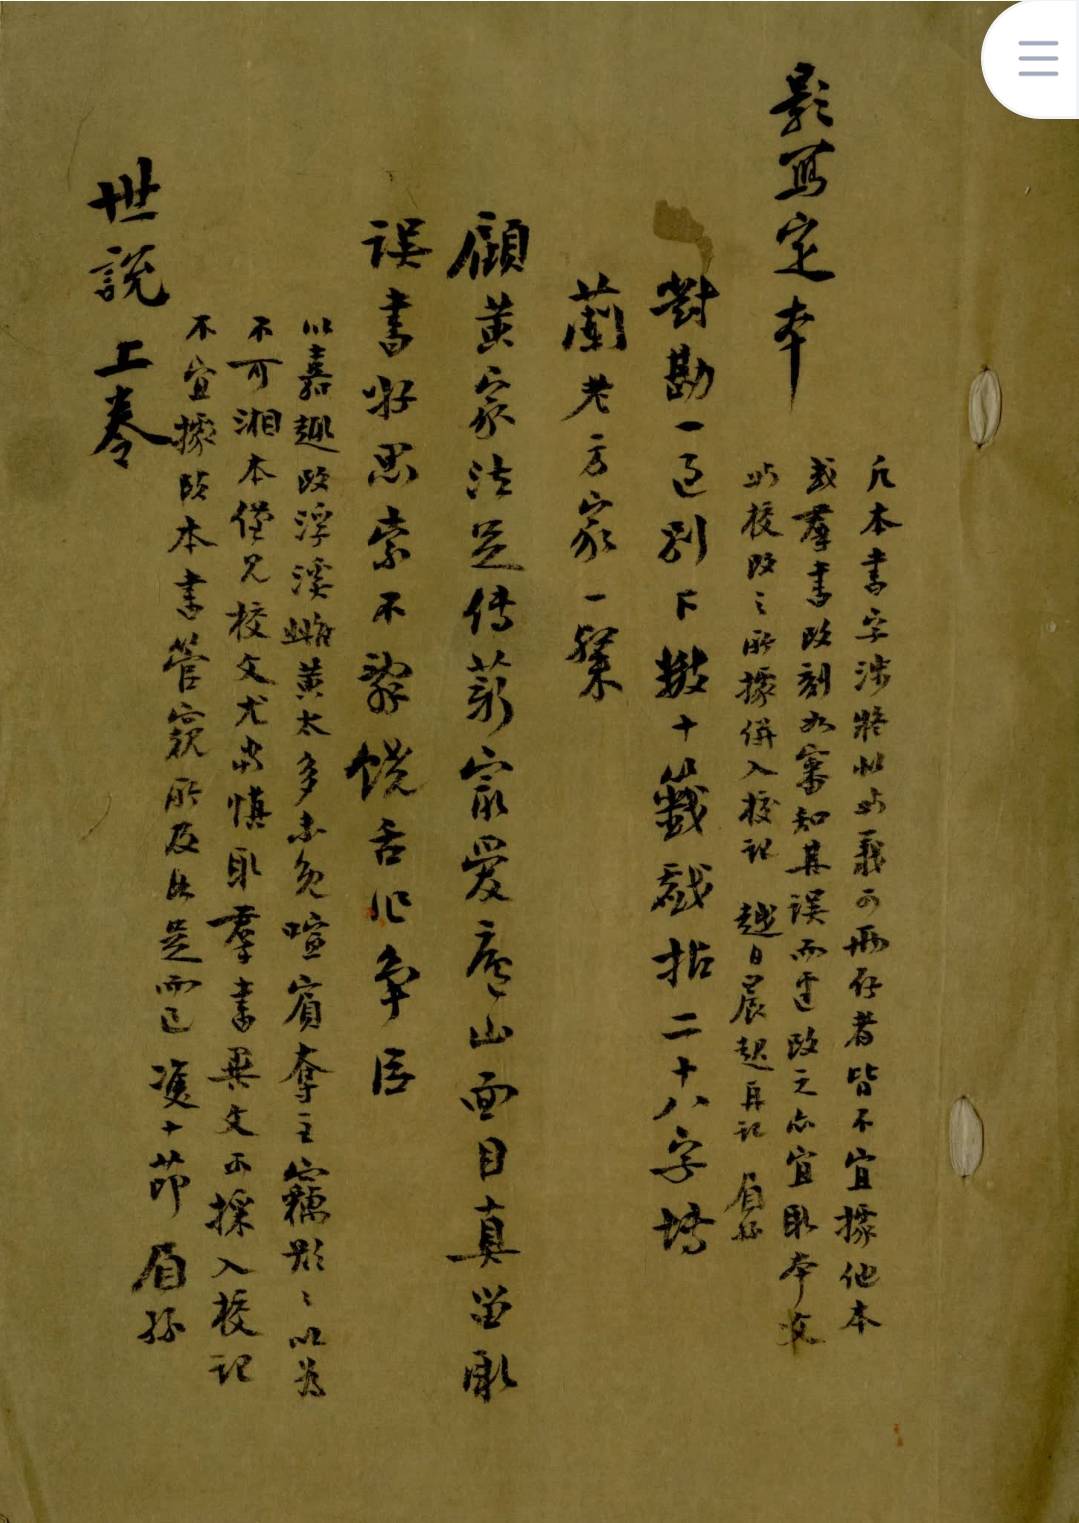 影寫定本
凡本書字涉疑似於義可兩存者皆不宜據他本
或羣書改刻如審知其誤而逕改之亦宜取本文
於校改之所據併入校記 越日晨起再記 眉孫
對勘一過別下數十籤戲拈二十八字博
蘭老方家一粲
顧黃家法足傳薪最愛廬山面目真留取
誤書好思索不勞饒舌作爭臣
以嘉趣改浮溪雌黃太多未免喧賓奪主竊期期以為
不可湘本僅見校文尤當慎取羣書異文可採入校記
不宜據改本書管窺所及止是而已 雙十節 眉孫
世說上卷